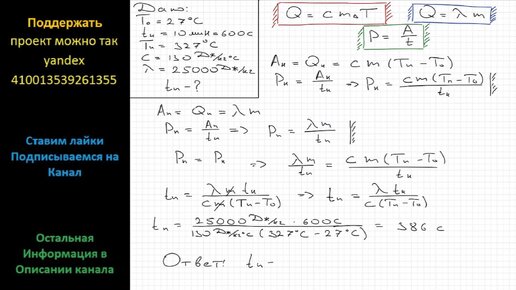 Поддержать
проект можно так
yandex
410013539261355
Ставим лайки
Подписываемся на
Канал
Остальная
Информация в
Описании канала
Дано:
T₀ = 27°C
tн = 10 мин = 600c
Tп = 327°C
C = 130 Дж/кг°C
λ = 25000 Дж/кг
tп - ?
Q = c m ΔT
Q = λ m
P = A/t
Aн = Qн = c m (Tп - T₀)
Pн = Aн/tн => Pн = c m (Tп - T₀)/tн
Aп = Qп = λ m
Pп = Aп/tп => Pп = λ m/tп
Pп = Pн => λ m/tп = c m (Tп - T₀)/tн
tп = λ m tн/c m (Tп - T₀) => tп = λ tн/c (Tп - T₀)
tп = 25000 Дж/кг · 600c/130 Дж/кг°C (327°C - 27°C) = 386 c
Ответ: tп -